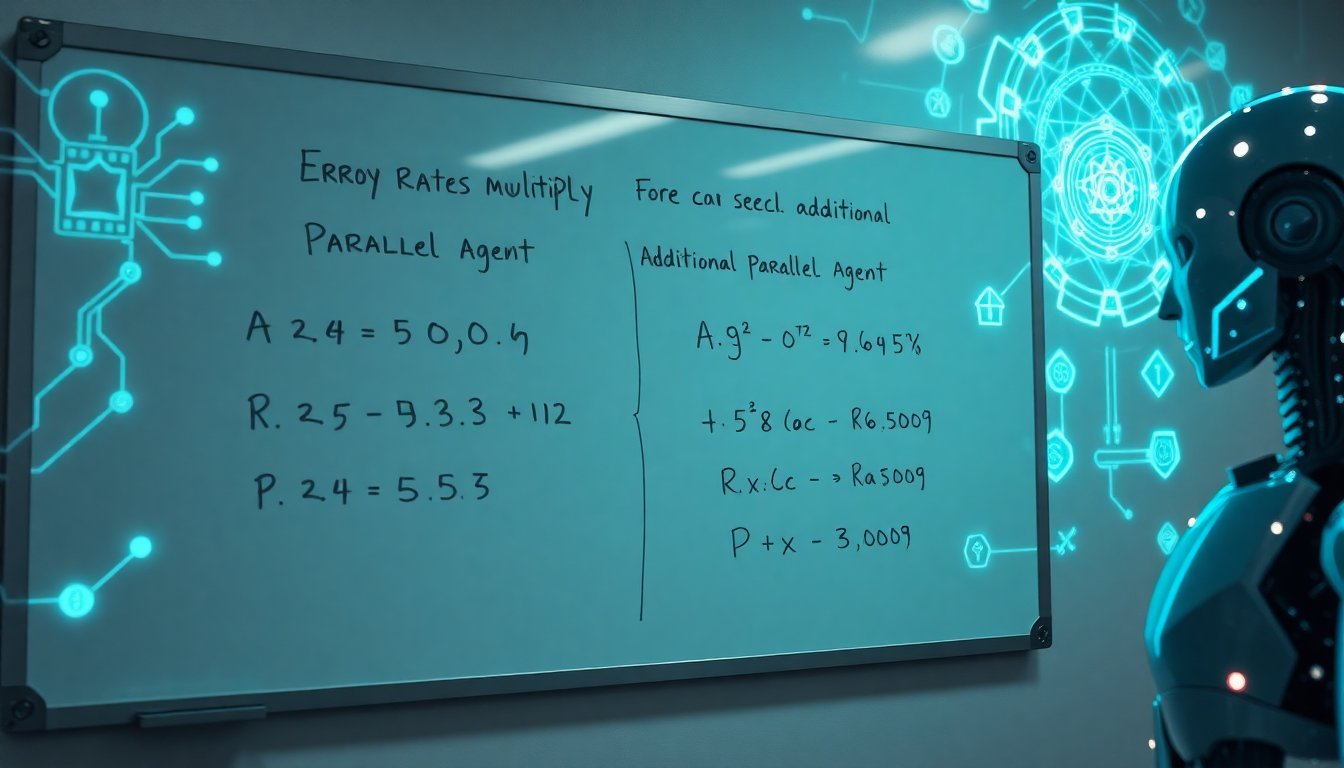 ERROY RATES MULITIPLY
PARALLEL Agent
A 24 = 50,0.5
R. 25 - 9.3.3 + 112
P. 24 = 5.5.3
Fore car seecl. additional
Additional Parallel Agent
A.g² - 0ᵀ² = 9.645%
+.5²8 (oc - R6.5009
R.x.(c - → Ra5009
P + x - 3,0009